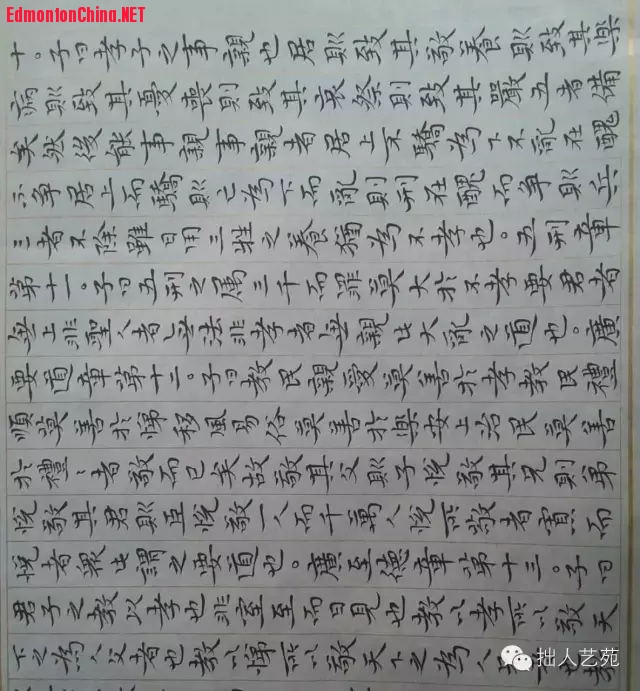 EdmontonChina.NET
十。子曰孝子之事親也居則致其敬養則致其樂
病則致其憂喪則致其哀祭則致其嚴五者備
矣然後能事親事親者居上不驕為下不亂在醜
不爭居上而驕則亡為下而亂則刑在醜而爭則兵
三者不除雖日用三牲之養猶為不孝也。五刑章
第十一。子曰五刑之屬三千而罪莫大於不孝要君者
無上非聖人者無法非孝者無親此大亂之道也。廣
要道章第十二。子曰教民親愛莫善於孝教民禮
順莫善於悌移風易俗莫善於樂安上治民莫善
於禮〻者敬而已矣故敬其父則子悅敬其兄則弟
悅敬其君則臣悅敬一人而千萬人悅所敬者寡而
悅者眾此謂之要道也。廣至德章第十三。子曰
君子之教以孝也非家至而日見也教以孝所以敬天
下之為人父者也教以悌所以敬天下之為人
拙人艺苑